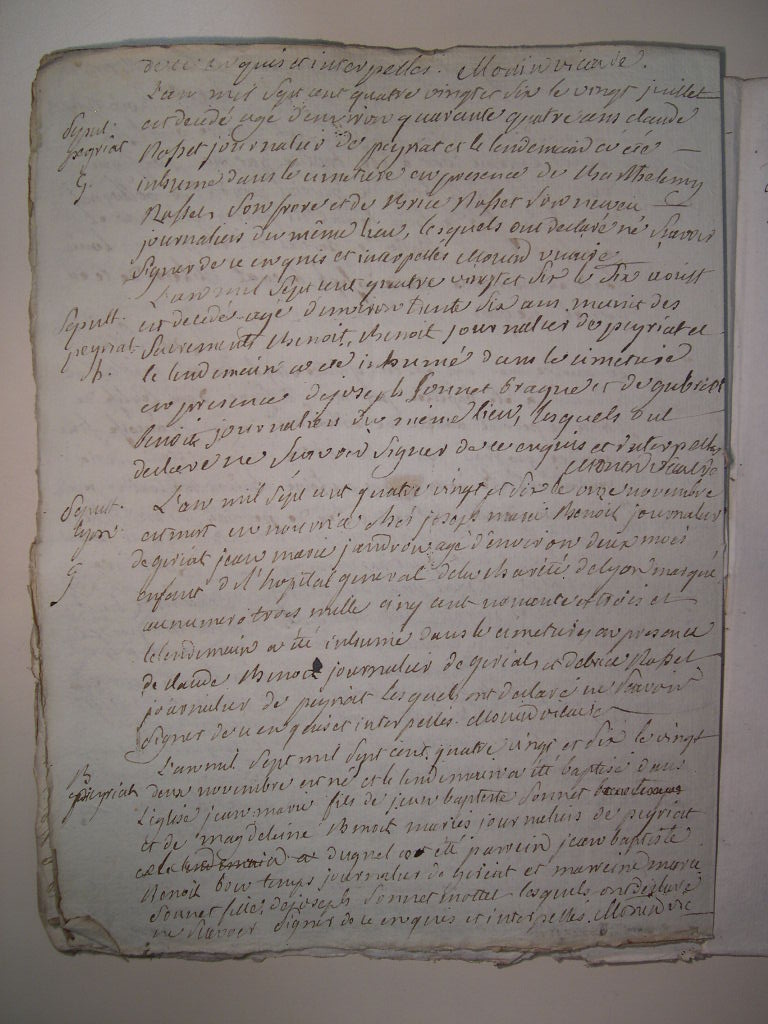 de ce enquis et interpelles. Monin vicaire.
L'an mil sept cent quatre vingt et dix le vingt juillet
Sepult.
peyriat
G.
est decedé agé d'environ quarante quatre ans claude
Rosset journalier de peyriat et le lendemain a été
inhumé dans le cimetière en presence de Barthelemy
Rosset son frere et de Brice Rosset son neveu
journaliers du même lieu, lesquels ont declaré ne scavoir
signer de ce enquis et interpellés Monin vicaire
L'an mil sept cent quatre vingt et dix le six aoust
Sepult.
peyriat
h.
est decedé agé d'environ trente six ans munit des
sacrements Benoit, Benoit journalier de peyriat et
le lendemain a été inhumé dans le cimetiere
en presence de joseph Sonnet braque et de gabriel
Benoit journaliers du même lieu, lesquels ont
declaré ne scavoir signer de ce enquis et interpellés
Monin vicaire
Sepult.
lyon
G
L'an mil sept cent quatre vingt et dix le onze novembre
est mort en nourrice chés joseph marie Benoit journalier
de giriat jean marie agé d'environ deux mois
enfant de l'hopital general de la charité de lyon marqué
au numero trois mille cinq cent nonante et trois et
le lendemain a été inhumé dans le cimetiere en presence
de claude Benoit journalier de giriat et de brice Rosset
journalier de peyriat lesquels ont declaré ne scavoir
signer de ce enquis et interpellés. Monin vicaire
L'an mil sept mil sept cent quatre vingt et dix le vingt
B
peyriat
deux novembre est né et le lendemain a été baptisé dans
l'eglise jean marie fils de jean baptiste Sonnet
et de magdeleine Benoit mariés journaliers de peyriat
duquel a été parrein jean baptiste
Benoit bon temps journalier de giriat et marreine marie
Sonnet fille de joseph Sonnet mottet lesquels ont declaré
ne scavoir signer de ce enquis et interpelles. Monin vic